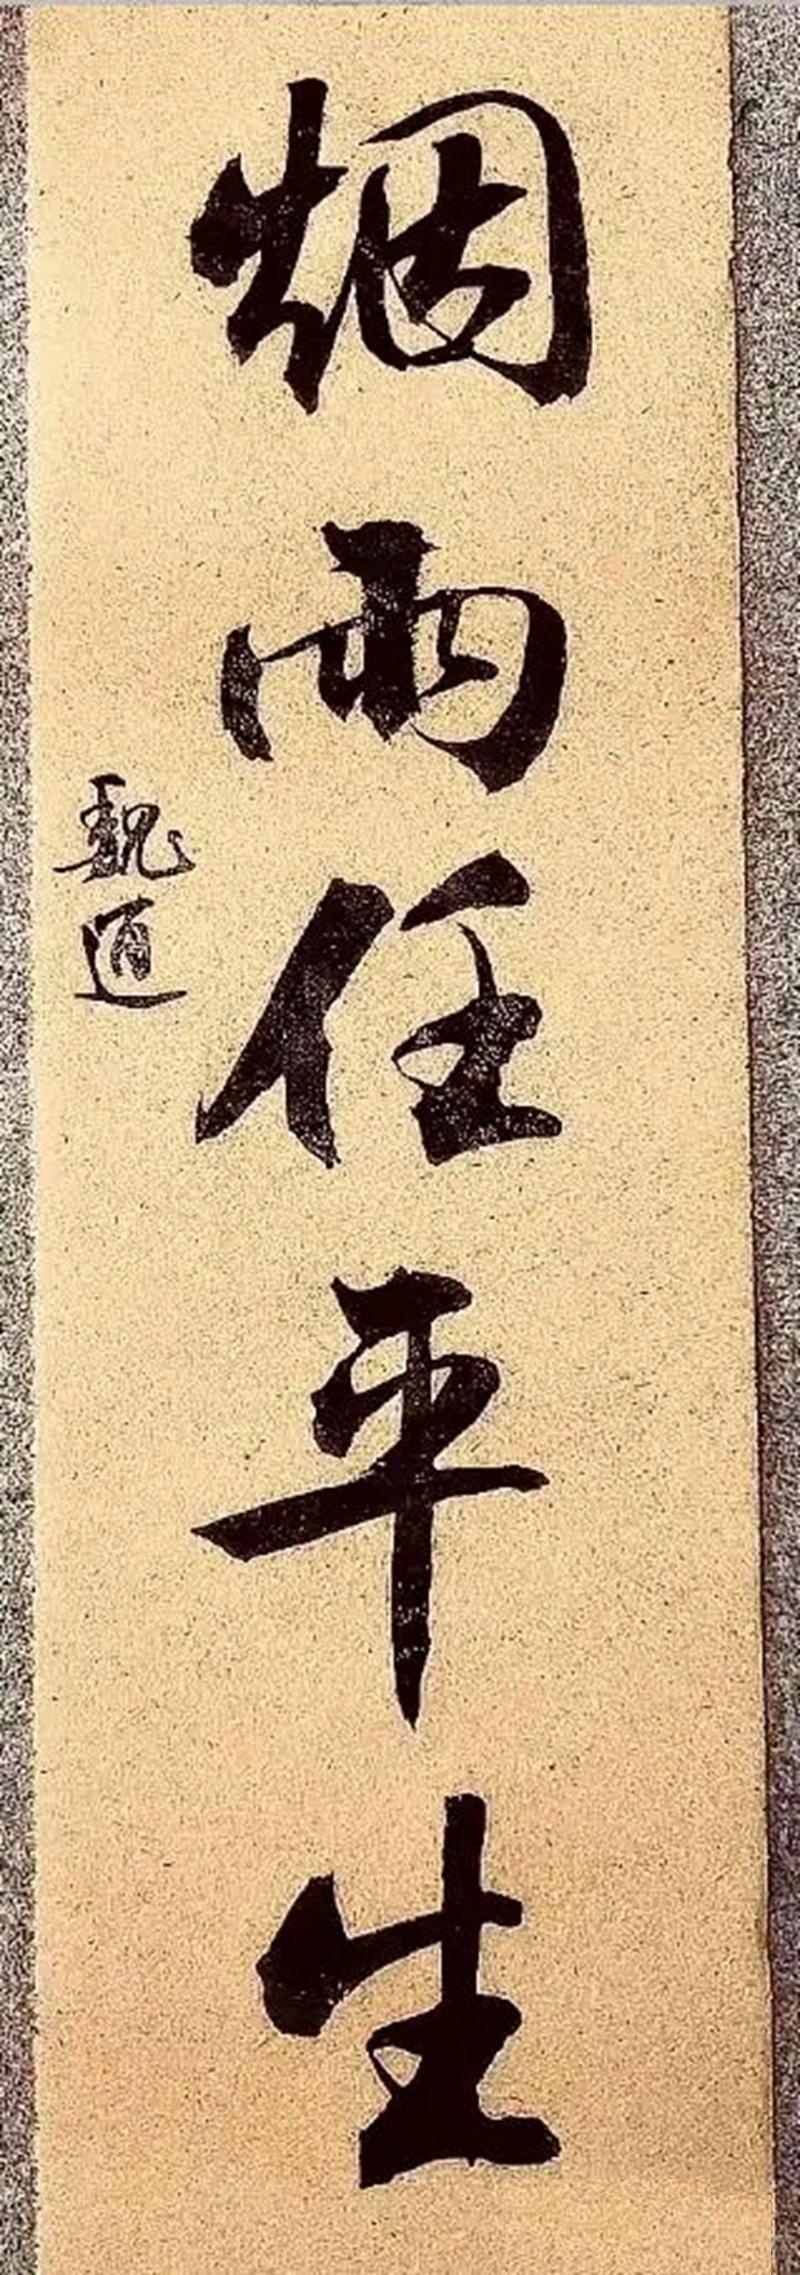 烟雨任平生
魏道